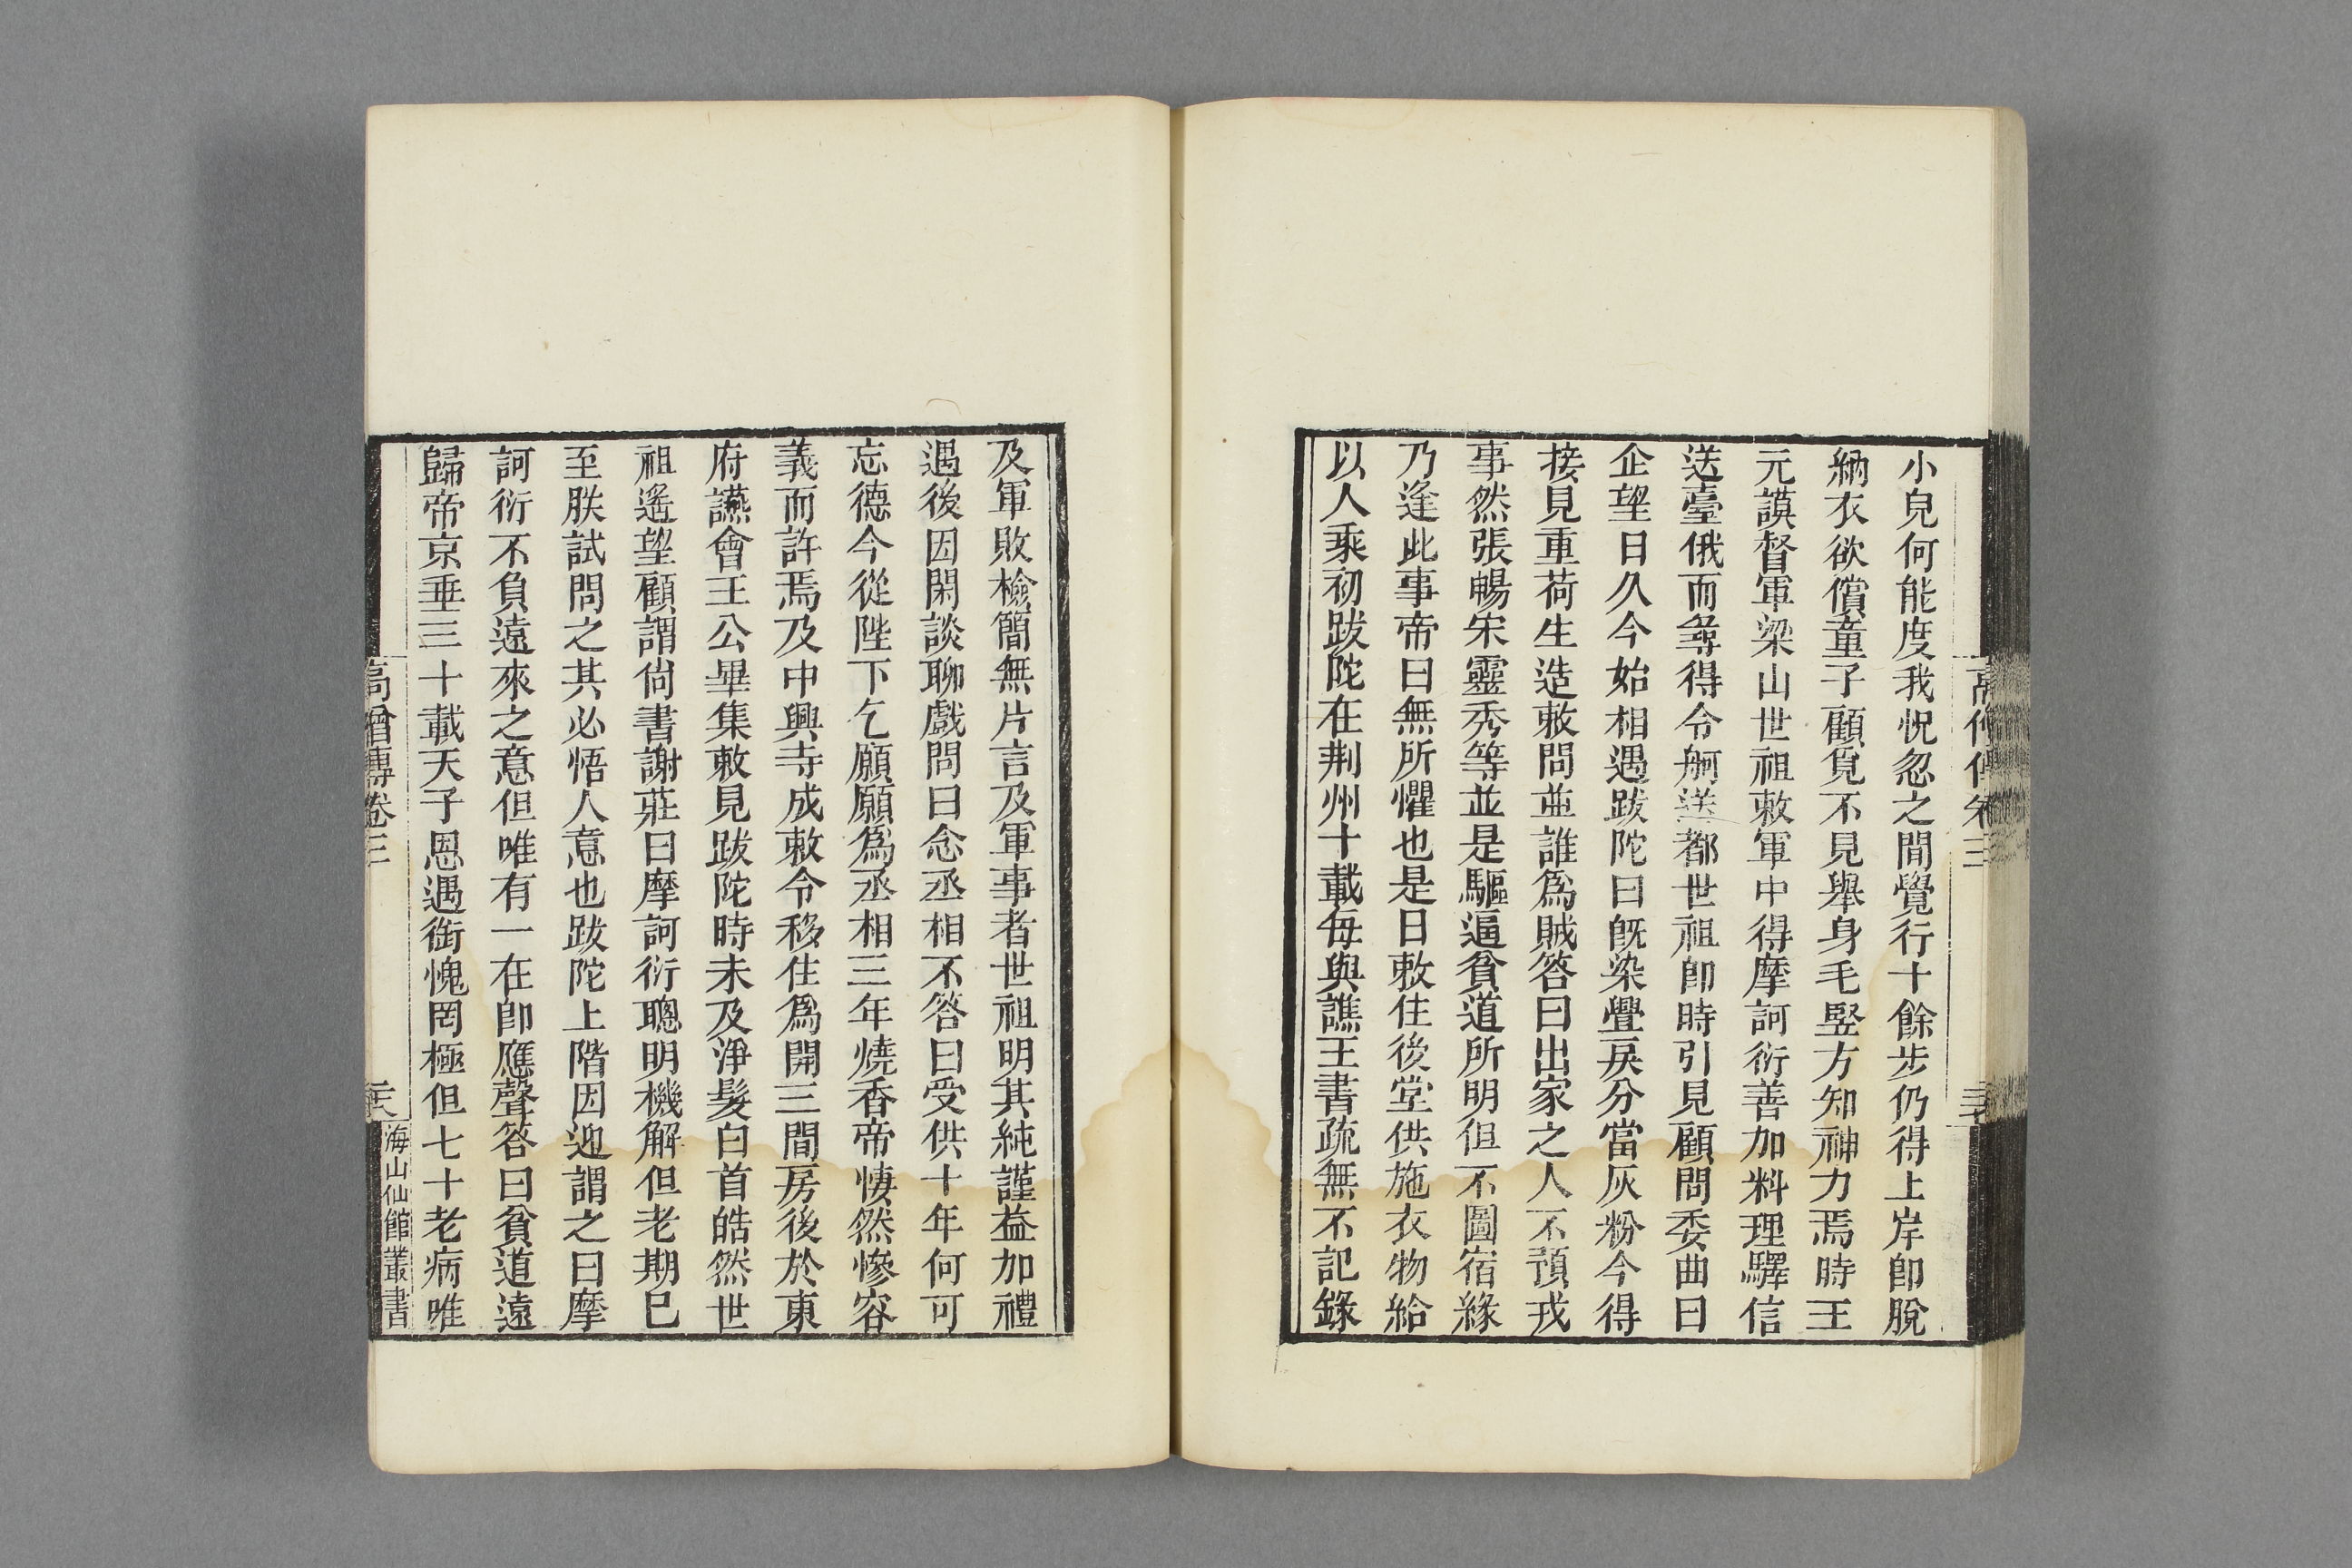 小兒何能度我怳忽之間覺行十餘步仍得上岸卽脫
納衣欲償童子顧覓不見舉身毛竪方知神力焉時王
元謨督軍梁山世祖敕軍中得摩訶衍善加料理驛信
送臺俄而尋得令舸送都世祖卽時引見顧問委曲曰
企望日久今始相遇跋陀曰旣染舋戾分當灰粉今得
接見重荷生造敕問並誰爲賊答曰出家之人不預戎
事然張暢宋靈秀等並是驅逼貧道所明但不圖宿緣
乃逢此事帝曰無所懼也是日敕住後堂供施衣物給
以人乘初跋陀在荆州十載每與譙王書疏無不記錄
及軍敗檢簡無片言及軍事者世祖明其純謹益加禮
遇後因閑談聊戲問曰念丞相不答曰受供十年何可
忘德今從陛下乞願願爲丞相三年燒香帝悽然慘容
義而許焉及中興寺成敕令移住爲開三間房後於東
府讌會王公畢集敕見跋陀時未及淨髮白首皓然世
祖遙望顧謂尙書謝莊曰摩訶衍聰明機解但老期已
至朕試問之其必悟人意也跋陀上階因迎謂之曰摩
訶衍不負遠來之意但唯有一在卽應聲答曰貧道遠
歸帝京垂三十載天子恩遇銜愧罔極但七十老病唯
高僧傳卷三
海山仙館叢書